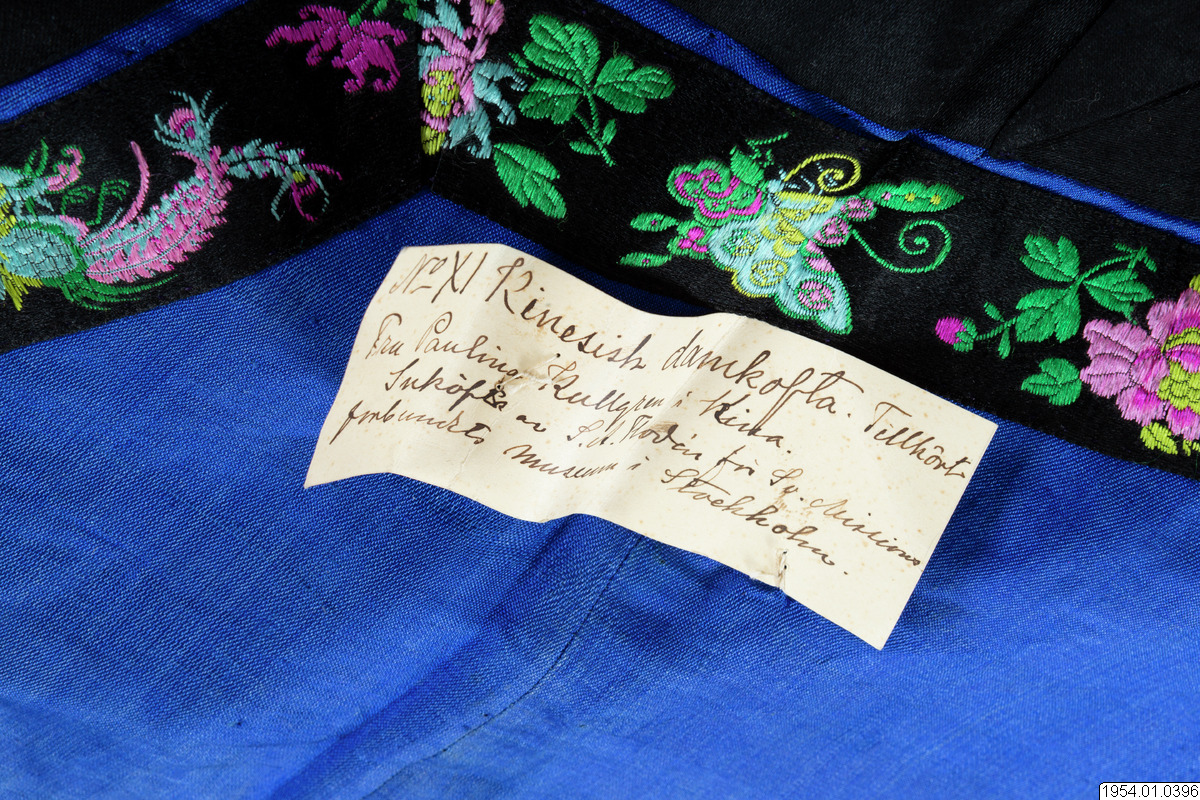 No XI Kinesisk damkofta. Tillhört
Fru Paulina Kullgren i Kina.
Inköpta av S.A. Rodin för Sv. Missions
förbundets museum i Stockholm.
1954.01.0396